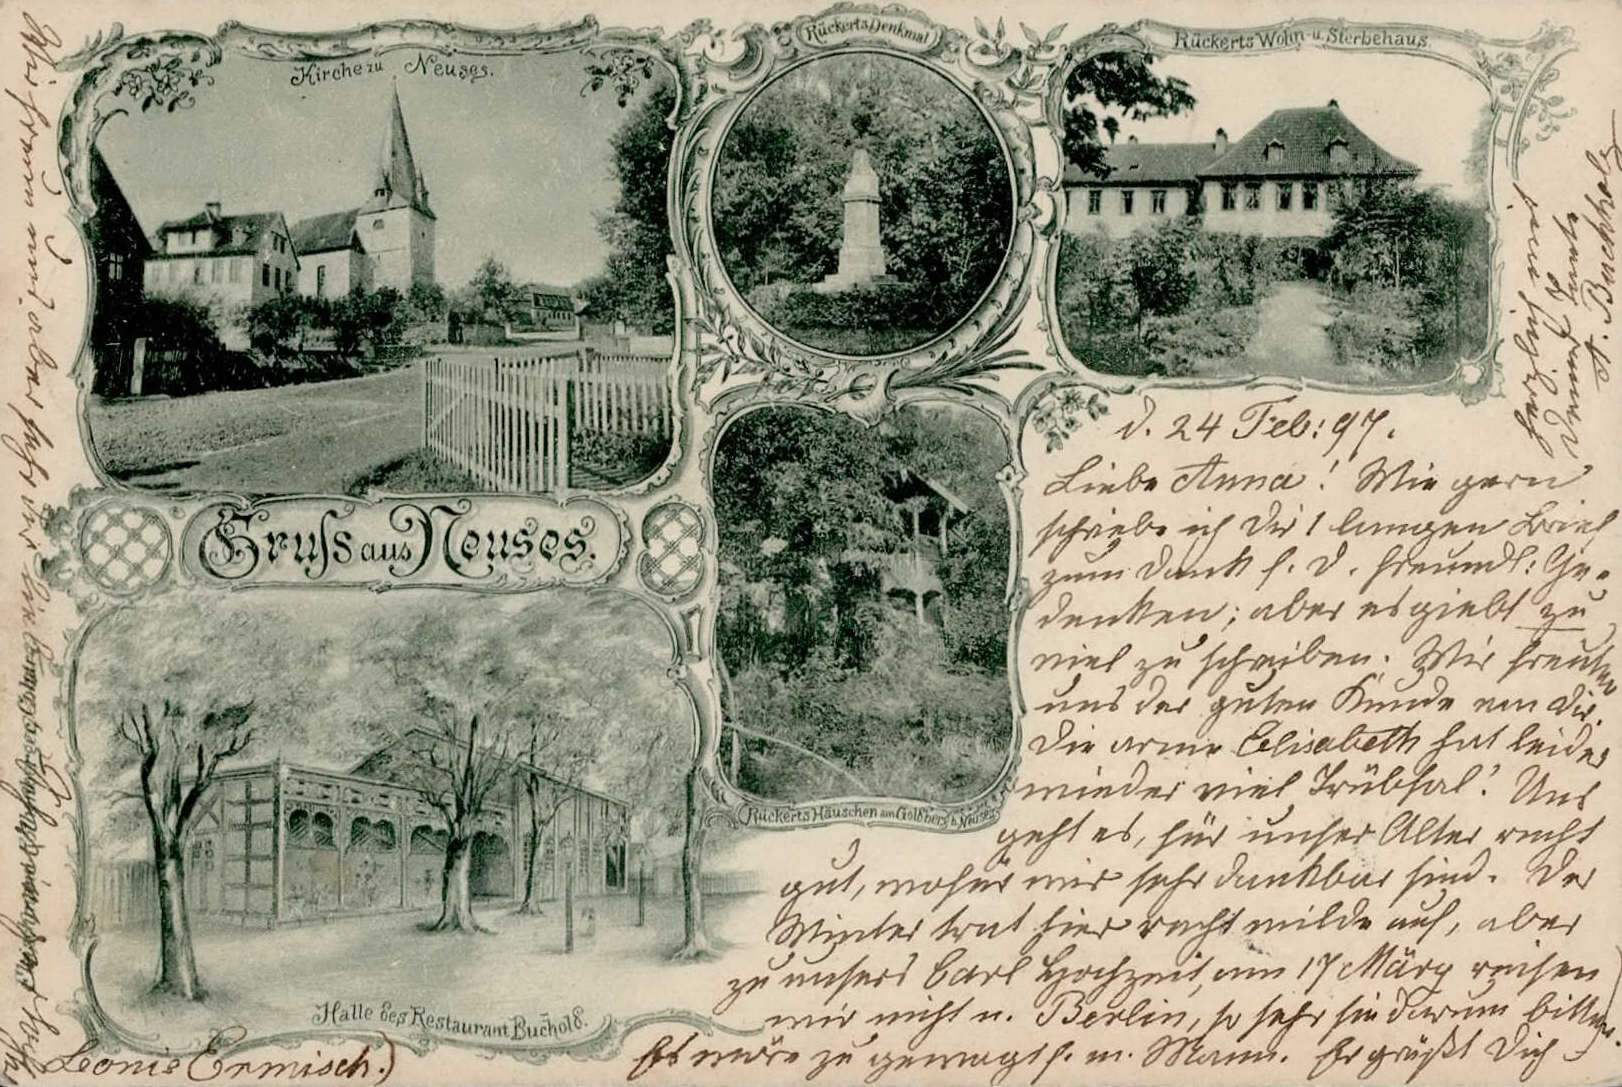 Kirche zu Neuses.
Rückerts Denkmal
Rückerts Wohn- u. Sterbehaus.
Gruss aus Neuses.
Rückerts Häuschen am Goldberg b. Neuses
Halle des Restaurant Buchold.
d. 24 Feb: 97.
Liebe Anna! Wie gern
schriebe ich Dir 1 langen Brief
zum Dank f. D. freundl: Ge-
denken; aber es giebt zu
viel zu schreiben. Wir freuten
uns der guten Kunde von Dir.
Die arme Elisabeth hat leider
wieder viel Trübsal! Uns
geht es, für unser Alter recht
gut, wofür wir sehr dankbar sind. Der
Winter trat hier recht milde auf, aber
zu unsers Carl Hochzeit, am 17 März reisen
wir nicht n. Berlin, so sehr sie darum bitten.
Es wäre zu gewagt f. m. Mann. Er grüßt Dich
Wir freuen uns aber sehr
Leonie Ermisch.)